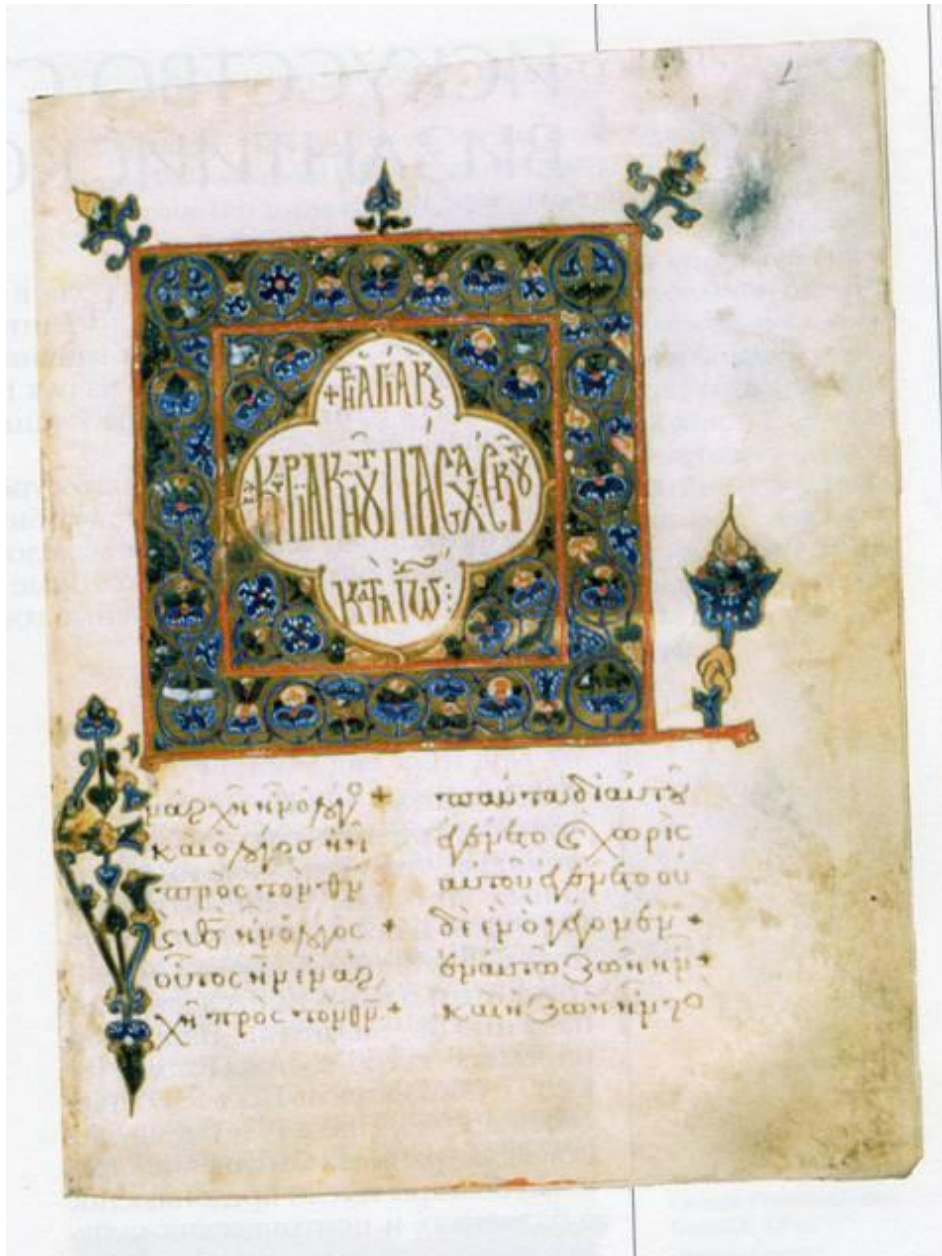 1
+ τῇ ἁγίᾳ κ(αὶ)
κυριακῇ τοῦ πάσχα· ἐκ τοῦ
κατὰ Ἰω:
ν ἀρχῇ ἦν ὁ λόγο +
καὶ ὁ λόγος ἦν
πρὸς τὸν θν
καὶ θς ἦν ὁ λόγος +
οὗτος ἦν ἐν ἀρ
χῇ πρὸς τὸν θν +
πάντα δι αὐτοῦ
ἐγένετο καὶ χωρὶς
αὐτοῦ ἐγένετο οὐ
δὲ ἓν ὃ γέγονεν +
ἐν αὐτῷ ζωὴ ἦν +
καὶ ἡ ζωὴ ἦν τὸ